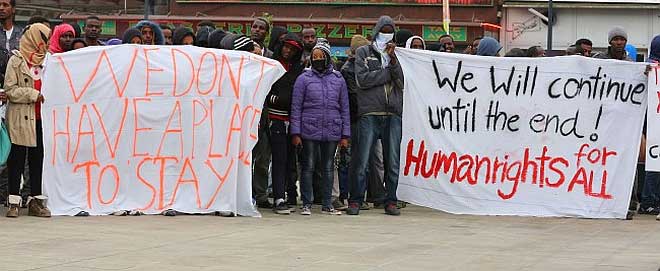 PIZZER
WE DON'T
HAVE A PLACE
TO STAY
We Will continue
until the end!
Humanrights for
ALL